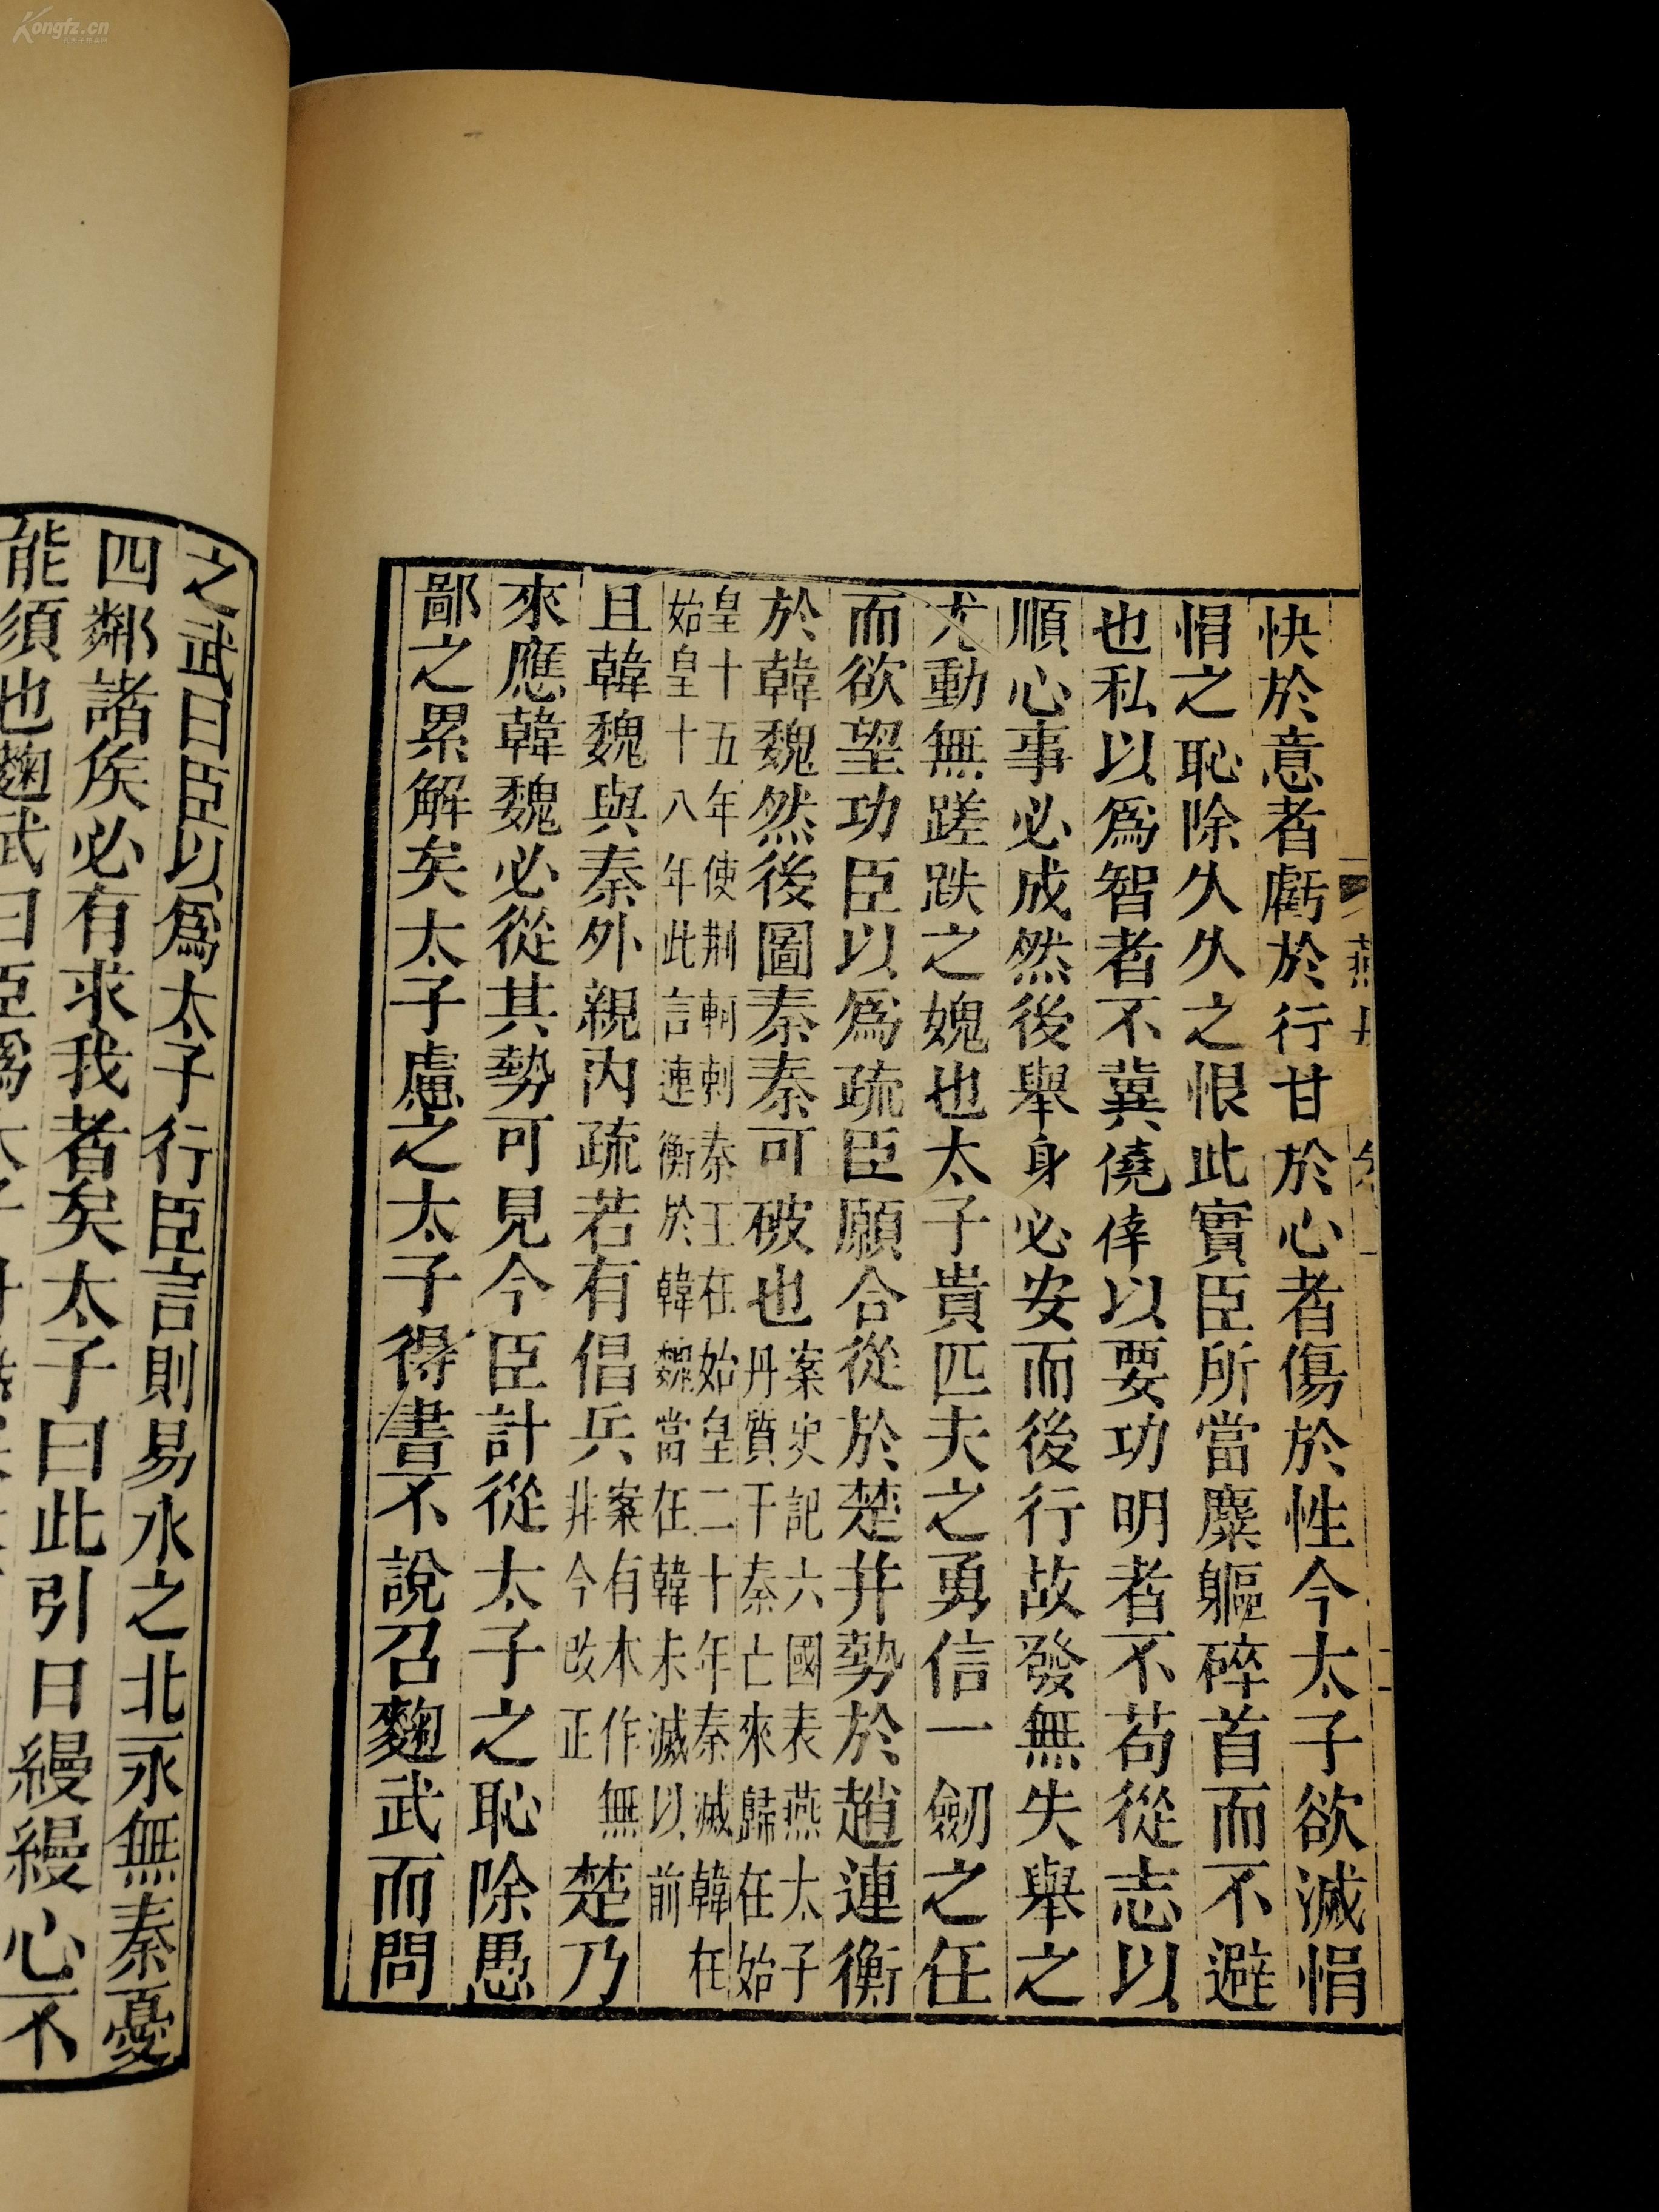 Kongfz.cn
快於意者虧於行甘於心者傷於性今太子欲滅悁
悁之恥除久久之恨此實臣所當麋軀碎首而不避
也私以爲智者不冀僥倖以要功明者不苟從志以
順心事必成然後舉身必安而後行故發無失舉之
尤動無蹉跌之媿也太子貴匹夫之勇信一劒之任
而欲望功臣以爲疏臣願合從於楚并勢於趙連衡
於韓魏然後圖秦秦可破也案史記六國表燕太子丹質于秦亡來歸在始
皇十五年使荆軻刺秦王在始皇二十年秦滅韓在
始皇十八年此言連衡於韓魏當在韓未滅以前
且韓魏與秦外親內疏若有倡兵案有本作無非今改正楚乃
來應韓魏必從其勢可見今臣計從太子之恥除愚
鄙之累解矣太子慮之太子得書不說召麴武而問
之武曰臣以爲太子行臣言則易水之北永無秦憂
四鄰諸矦必有求我者矣太子曰此引日縵縵心不
能須也麴武曰臣爲太子